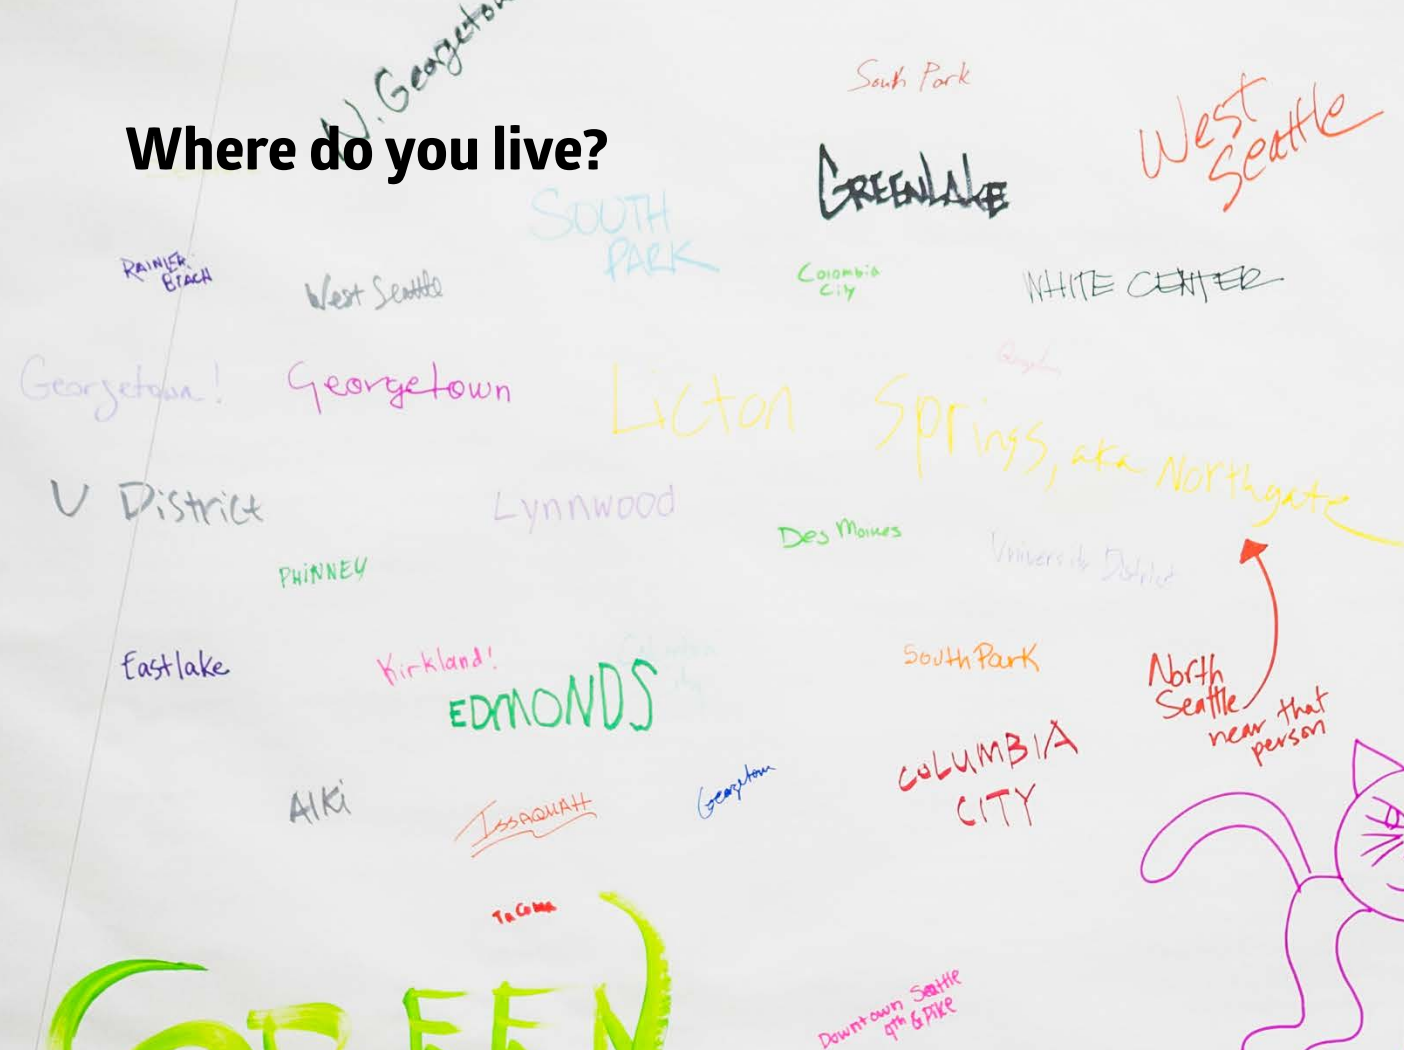 W. Georgetow
Where do you live?
South Park
West
Seattle
GREENLAKE
SOUTH
PARK
RAINIER
BEACH
West Seattle
Colombia
City
WHITE CENTER
Georgetown!
Georgetown
Licton Springs, aka Northgate
U District
Lynnwood
Des Moines
University District
PHINNEY
Eastlake
Kirkland!
EDMONDS
South Park
North
Seattle
near that
person
COLUMBIA
CITY
Georgetown
Alki
ISSAQUAH
Tacoma
GREEN
Downtown Seattle
9th & Pike